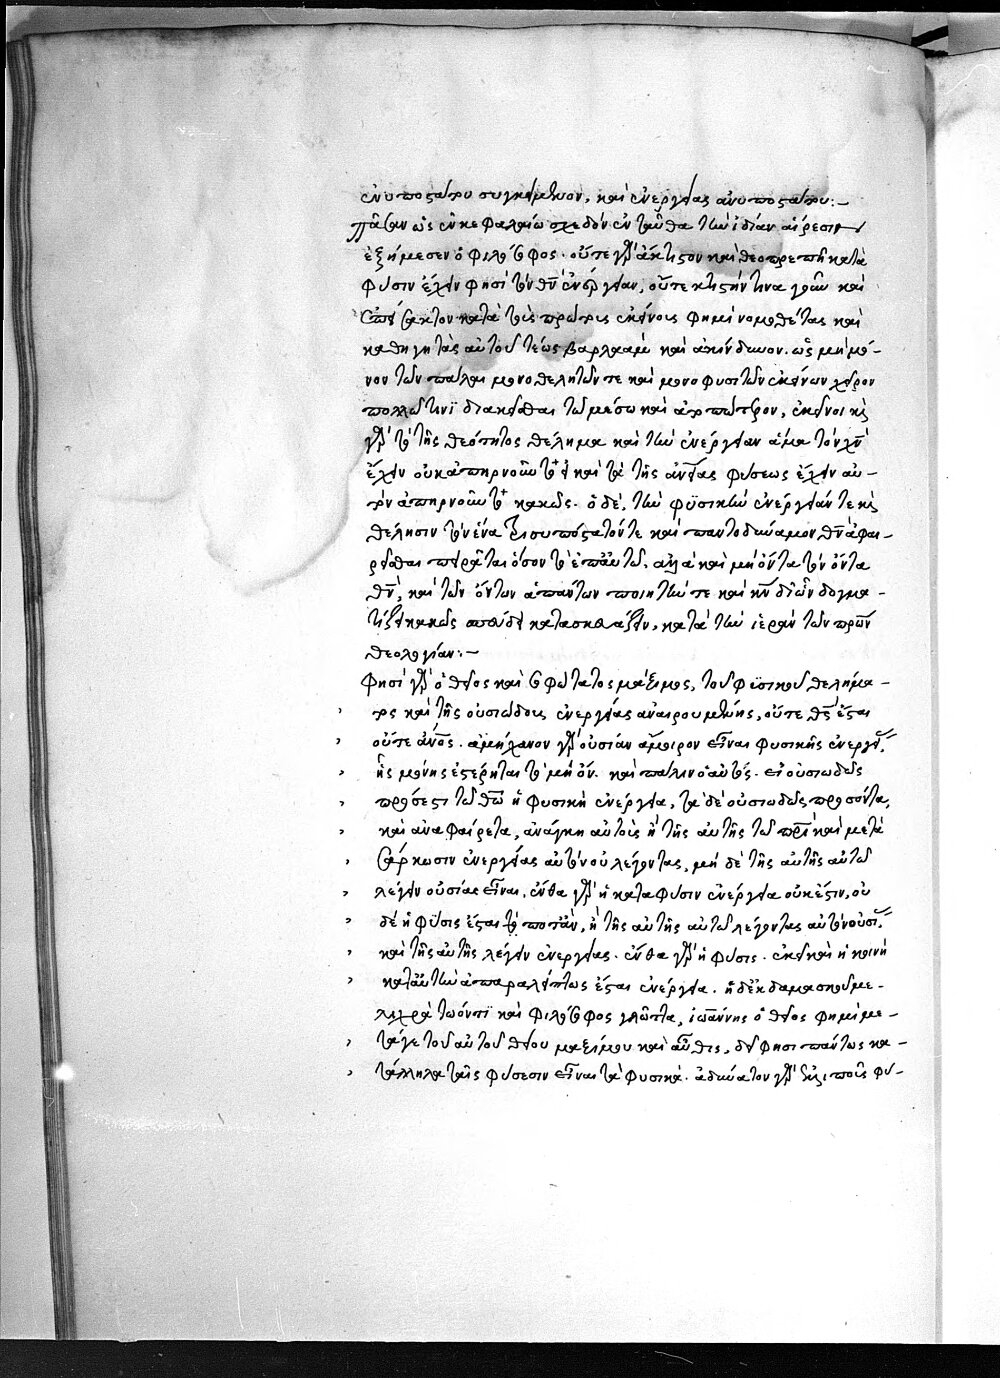 ἐνυποστάτου συγκειμένου, καὶ ἐνεργείας ἀνυποστάτου:–
Πᾶσαν ὡς ἐν κεφαλαίῳ σχεδὸν ἐνταῦθα τὴν ἰδίαν αἵρεσιν
ἐξήμεσεν ὁ φιλόσοφος. οὔτε γὰρ ἄκτιστον καὶ θεοπρεπῆ κατὰ
φύσιν ἔχειν φησὶ τὸν θν ἐνέργειαν, οὔτε κτιστήν τινα γοῦν καὶ
κατὰ τοὺς πρώτους ἐκείνους φημὶ νομοθέτας καὶ
καθηγητὰς αὐτοῦ τέως βαρλαὰμ καὶ ἀκίνδυνον. ὡς μὴ μό-
νον τῶν πάλαι μονοθελητῶν τε καὶ μονοφυσιτῶν ἐκείνων χεῖρον
πολλῷ τινὶ διακεῖσθαι τῷ μέσῳ καὶ ἀτοπώτερον, ἐκεῖνοι μὲν
γὰρ τὸ τῆς θεότητος θέλημα καὶ τὴν ἐνέργειαν ἅμα τὸν χν
ἔχειν οὐκ ἀπηρνοῦντο καὶ τὰ τῆς φύσεως ἔχειν αὐ-
τὸν ἀπηρνοῦντο κακῶς. ὁ δὲ, τὴν φυσικὴν ἐνέργειάν τε καὶ
θέλησιν τὸν ἕνα τρισυπόστατόν τε καὶ παντοδύναμον θν ἀφαι-
ρεῖσθαι πειρᾶται ὅσον τὸ ἐπ' αὐτῷ. ἀλλὰ καὶ μὴ ὄντα τὸν ὄντα
θν, καὶ τῶν ὄντων ἁπάντων ποιητήν τε καὶ κν δι' ὧν δογμα-
τίζει κακῶς σπεύδει κατασκευάζειν, κατὰ τὴν ἱερὰν τῶν πρων
θεολογίαν:–
Φησὶ γὰρ ὁ θεῖος καὶ σοφώτατος μάξιμος, τοῦ φυσικοῦ θελήμα-
τος καὶ τῆς οὐσιώδους ἐνεργείας ἀναιρουμένης, οὔτε θς ἔσται
οὔτε ανος. ἀμήχανον γὰρ οὐσίαν ἄμοιρον εἶναι φυσικῆς ἐνεργεί,
ἧς μόνης ἐστέρηται τὸ μὴ ὄν. καὶ πάλιν ὁ αὐτός. εἰ οὐσιωδῶς
πρόσεστι τῷ θω ἡ φυσικὴ ἐνέργεια, τὰ δὲ οὐσιωδῶς προσόντα,
καὶ ἀναφαίρετα, ἀνάγκη αὐτοὺς ἢ τῆς αὐτῆς τῷ πρι καὶ μετὰ
σάρκωσιν ἐνεργείας αὐτὸν οὐ λέγοντας, μὴ δὲ τῆς αὐτῆς αὐτῷ
λέγειν οὐσίας εἶναι. ἔνθα γὰρ ἡ κατὰ φύσιν ἐνέργεια οὐκ ἔστιν, οὐ
δὲ ἡ φύσις ἔσται τὸ ποτὰν, ἢ τῆς αὐτῆς αὐτῷ λέγοντας αὐτὸν οὐσί.
καὶ τῆς αὐτῆς λέγειν ἐνεργείας. ἔνθα γὰρ ἡ φύσις. ἐκεῖ καὶ ἡ κοινὴ
κατ' αὐτὴν ἀπαραλείπτως ἔσται ἐνέργεια. ἡ δ' ἐκ δαμασκοῦ με-
λιχρὰ τῷ ὄντι καὶ φιλόσοφος γλῶττα, ἰωάννης ὁ θεῖος φημὶ με-
τάγε τοῦ αὐτοῦ θείου μαξίμου καὶ αὖθις. δεῖ φησὶ πάντως κα-
τάλληλα ταῖς φύσεσιν εἶναι τὰ φυσικά. ἀδύνατον γὰρ φύ-